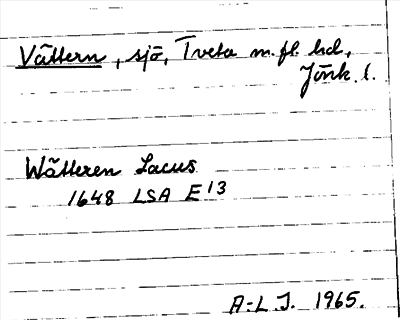 Vättern, sjö, Tveta m.fl. hd,
Jönk. l.
Wätteren Lacus
1648 LSA E13
A-L J. 1965.